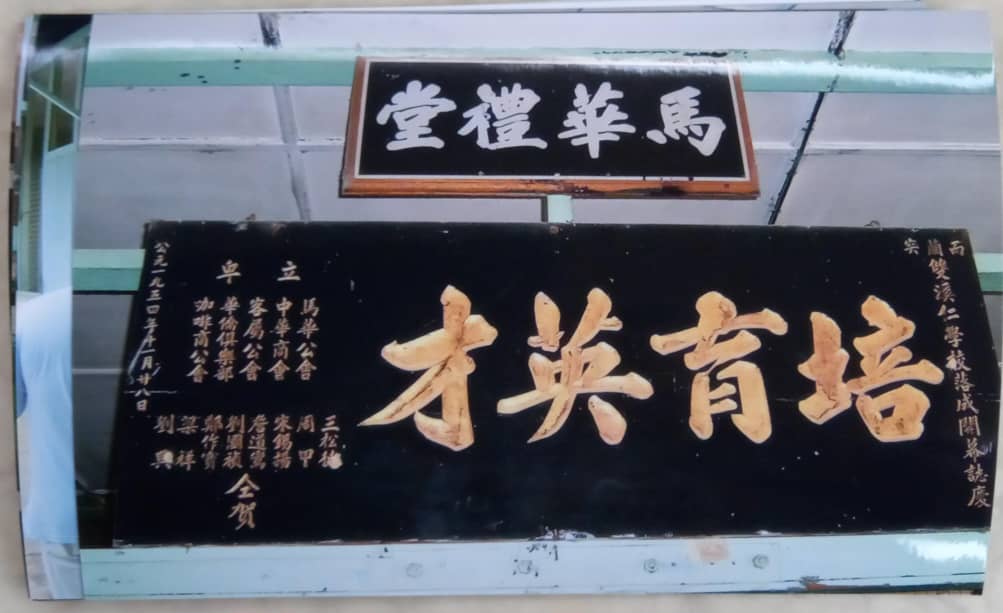 馬華禮堂
丙蘭
雙溪仁學校落成開幕誌慶
培育英才
立卑
馬華公會
中華商會
客屬公會
華僑俱樂部
咖啡商公會
周甲
宋錫揚
劉國禎
鄭作賓
梁祥
劉興
仝賀
公元一九五四年十一月廿八日